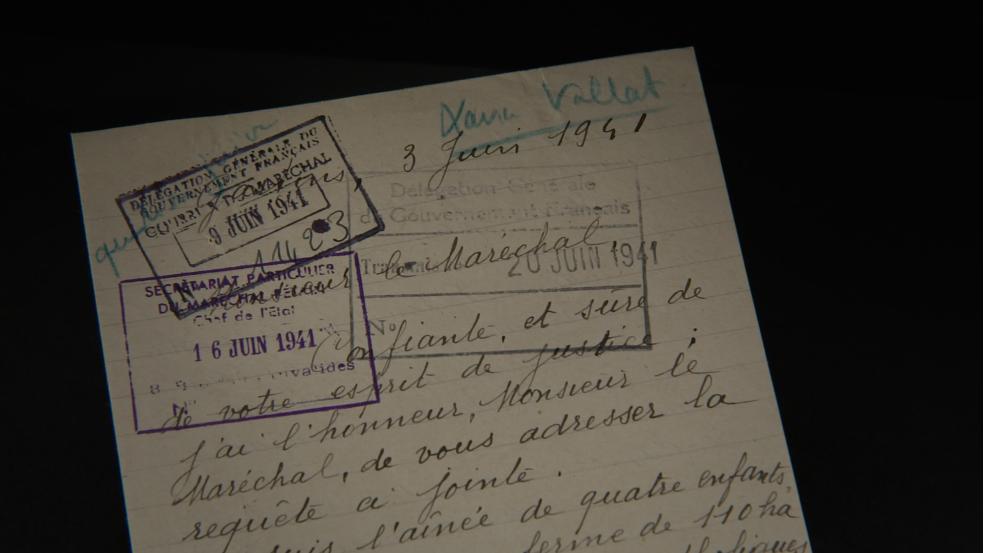 Xavier Vallat
3 Juin 1941
DÉLÉGATION GÉNÉRALE DU
GOUVERNEMENT FRANÇAIS
COURRIER DU MARÉCHAL
9 JUIN 1941
Nº 11423
Délégation Générale
du Gouvernement Français
20 JUIN 1941
Nº
SECRÉTARIAT PARTICULIER
DU MARÉCHAL PÉTAIN
Chef de l'État
16 JUIN 1941
Invalides
Nº
Monsieur le Maréchal
Confiante, et sûre de
de votre esprit de justice,
j'ai l'honneur, Monsieur le
Maréchal, de vous adresser la
requête ci jointe.
suis l'aînée de quatre enfants,
ferme de 110 ha